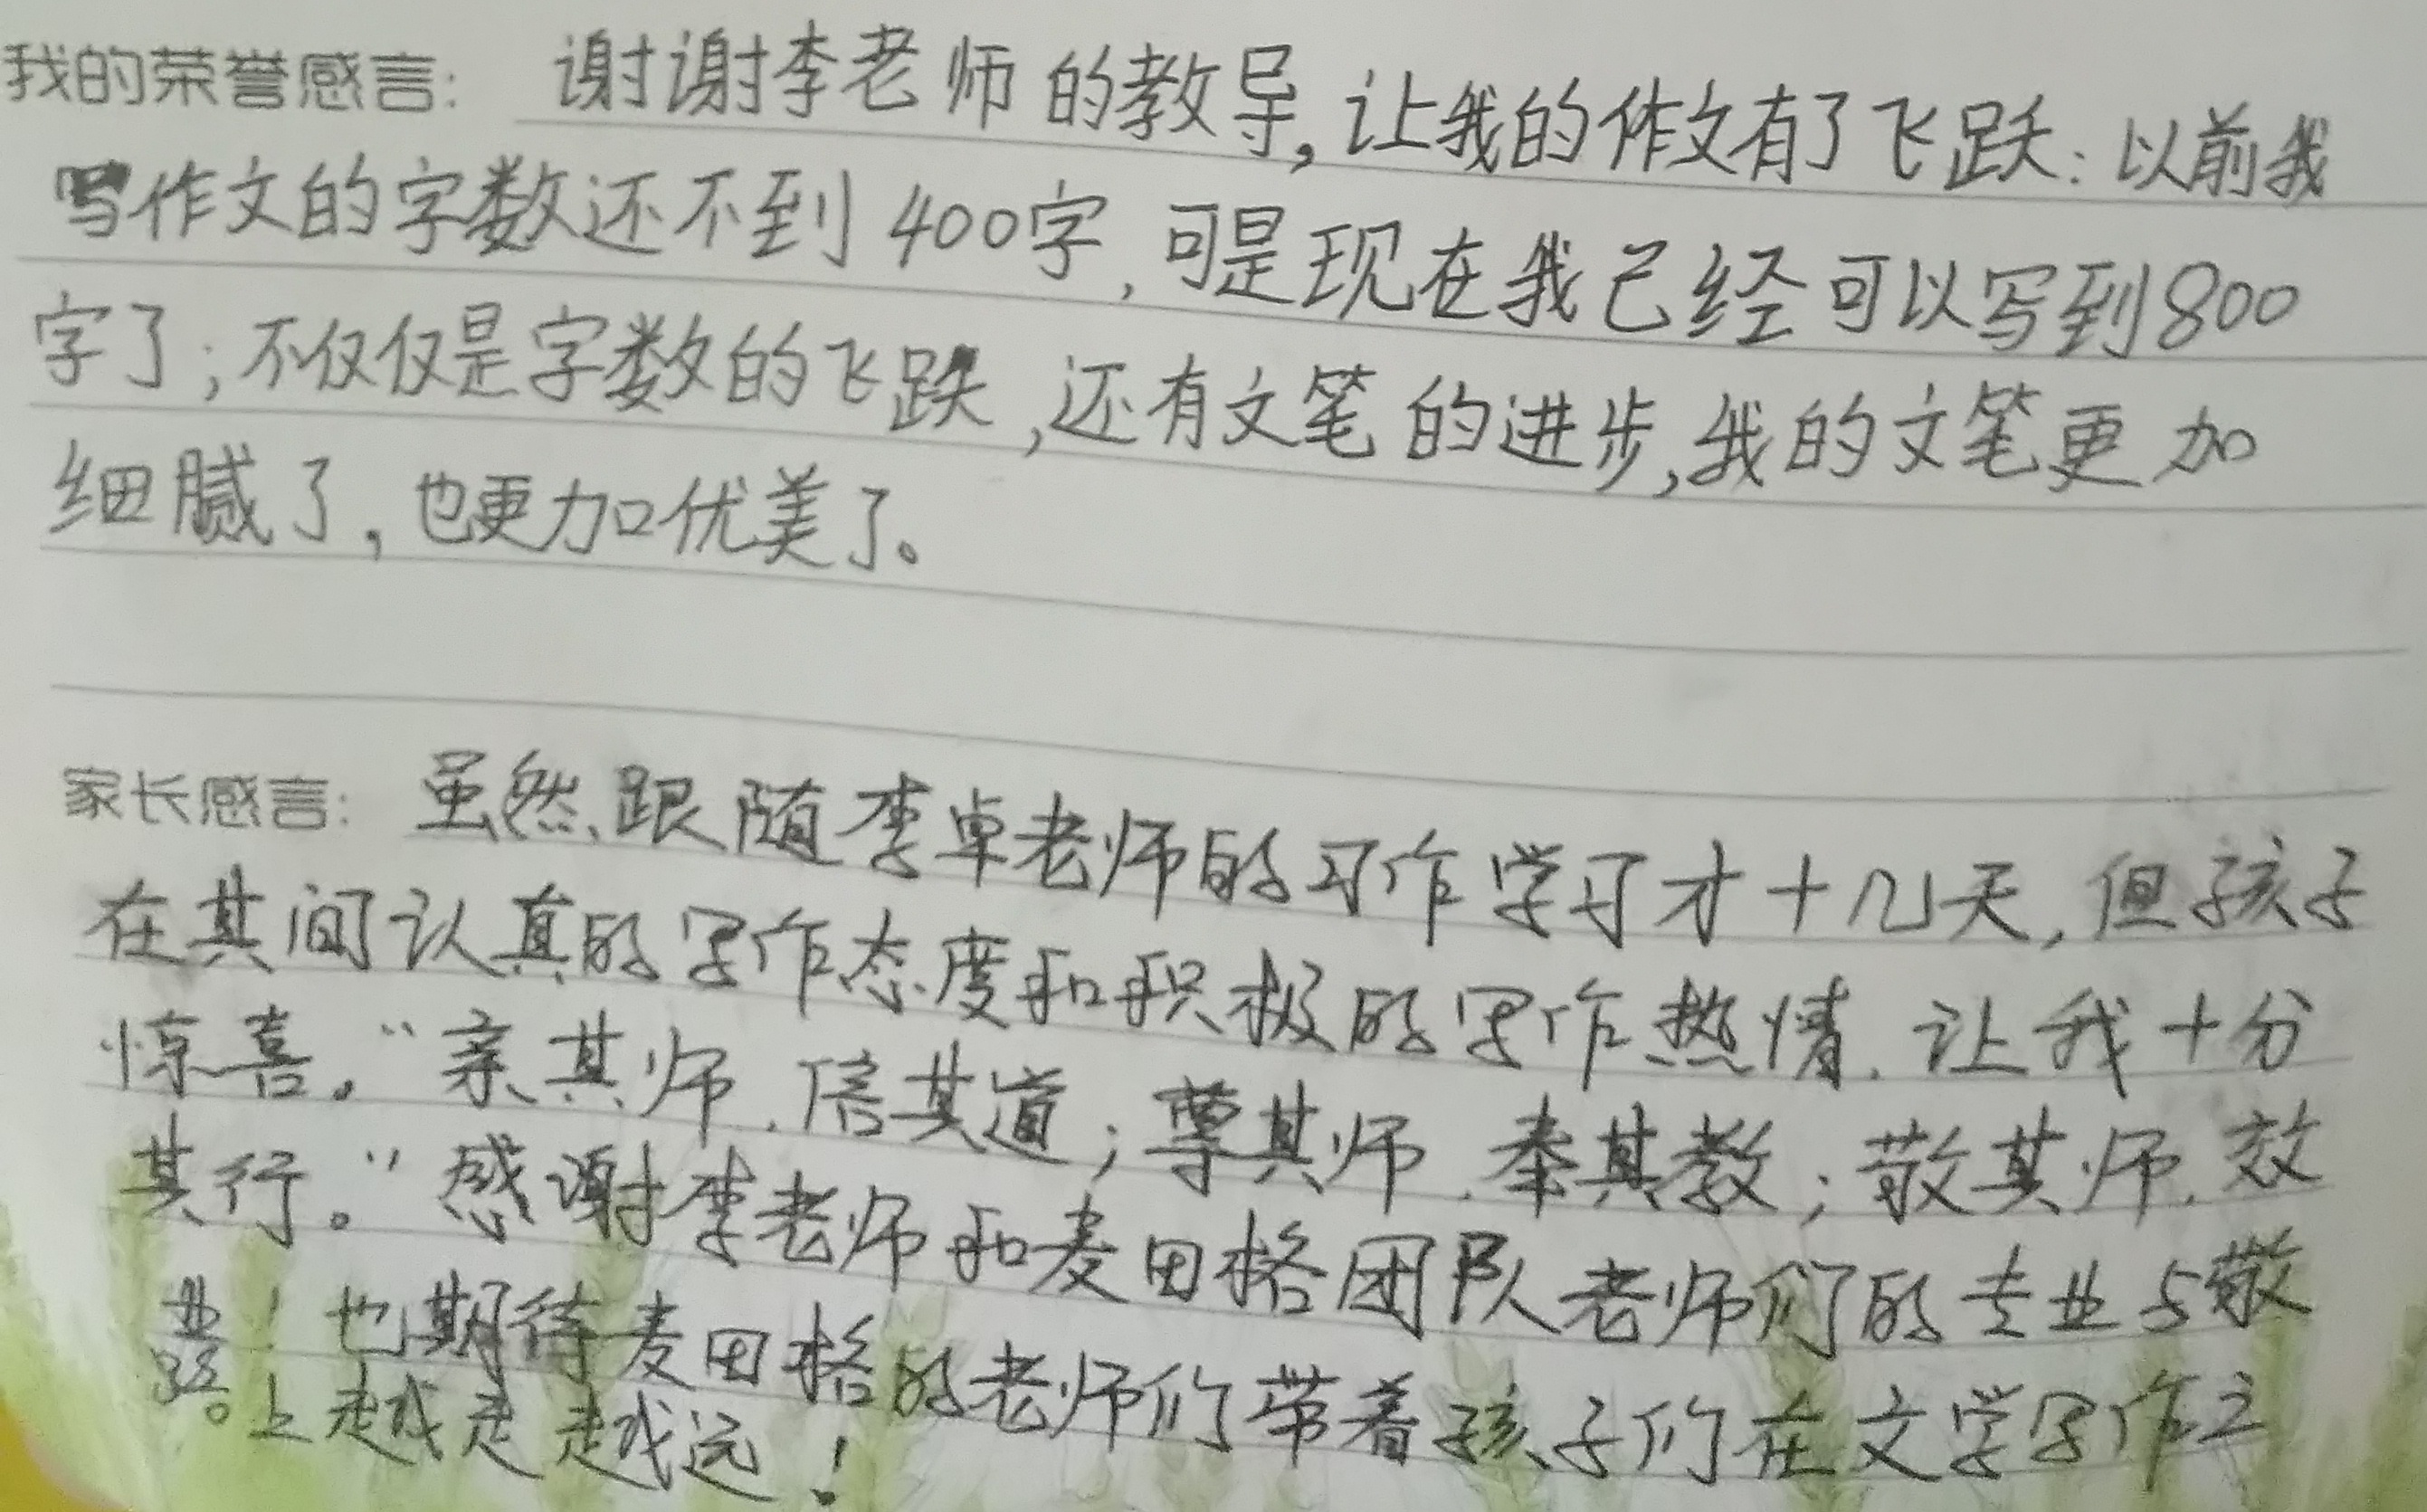 我的荣誉感言: 谢谢李老师的教导,让我的作文有了飞跃:以前我
写作文的字数还不到400字,可是现在我已经可以写到800
字了;不仅仅是字数的飞跃,还有文笔的进步,我的文笔更加
细腻了,也更加优美了。
家长感言: 虽然跟随李卓老师的习作学习才十几天,但孩子
在其间认真的写作态度和积极的写作热情,让我十分
惊喜。“亲其师,信其道;尊其师,奉其教;敬其师,效
其行。”感谢李老师和麦田格团队老师们的专业与敬
业!也期待麦田格的老师们带着孩子们在文学写作之
路上越走越远!